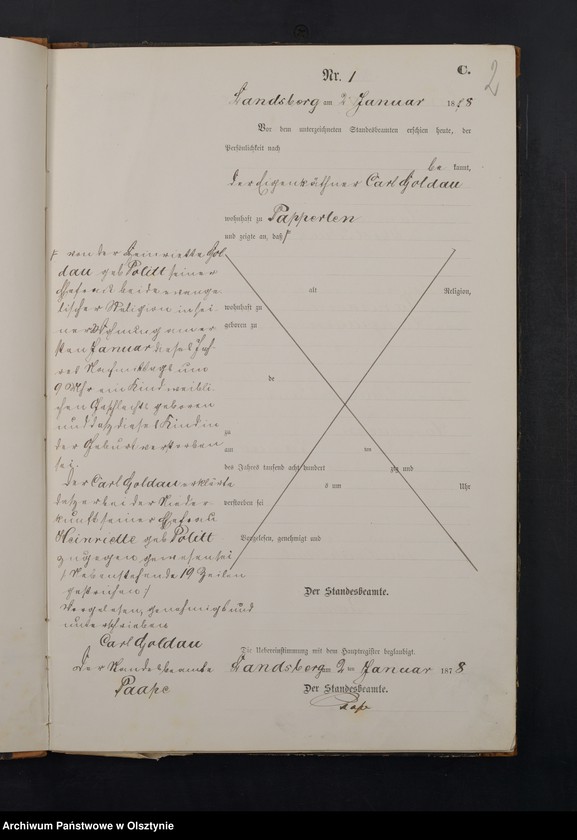 C. 2
Nr. 1
Landsberg am 2 Januar 1878
Vor dem unterzeichneten Standesbeamten erschien heute, der
Persönlichkeit nach
be kannt,
der Eigenkäthner Carl Goldau
wohnhaft zu Papperten
und zeigte an, daß
von der Henriette Gol
dau geb Politt seiner
Ehefrau beide evange
lischer Religion in sei
ner Wohnung am er
sten Januar dieses Jah
res Nachmittags um
9 Uhr ein Kind weibli
chen Geschlechts geboren
und daß dieses Kind in
der Geburt verstorben
sei.
Der Carl Goldau erklärte
daß er bei der Nieder
kunft seiner Ehefrau
Heinriette geb Politt
zugegen gewesen sei
Nebenstehende 19 Zeilen
gestrichen
Vorgelesen, genehmigt und
unterschrieben
Carl Goldau
Der Standesbeamte
Paape
alt Religion,
wohnhaft zu
geboren zu
de
zu
am ten
des Jahres tausend acht hundert zig und
s um Uhr
verstorben sei
Vorgelesen, genehmigt und
Der Standesbeamte.
Die Uebereinstimmung mit dem Hauptregister beglaubigt.
Landsberg am 2 ten Januar 1878
Der Standesbeamte.
Archiwum Państwowe w Olsztynie